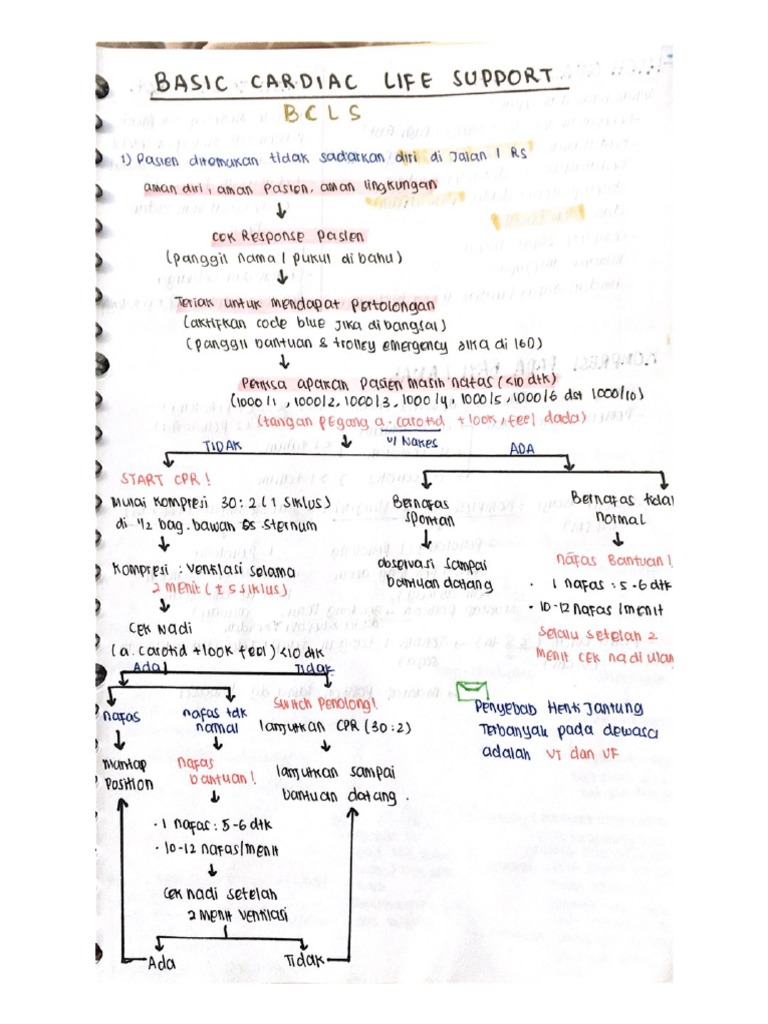 BASIC CARDIAC LIFE SUPPORT
BCLS
1) Pasien ditemukan tidak sadarkan diri di Jalan / RS
aman diri, aman pasien, aman lingkungan
cek Response pasien
(panggil nama / pukul di bahu)
Teriak untuk mendapat pertolongan
(aktifkan code blue jika dibangsal)
(panggil bantuan & trolley emergency jika di IGD)
Periksa apakah pasien masih nafas (<10 dtk)
(1000/1, 1000/2, 1000/3, 1000/4, 1000/5, 1000/6 dst 1000/10)
(tangan pegang a. carotid + look, feel dada)
u/ Nakes
TIDAK
ADA
START CPR!
Mulai kompresi 30:2 (1 siklus)
di 1/2 bag. bawan os sternum
Kompresi : ventilasi selama
2 menit (± 5 siklus)
CEK Nadi
(a. carotid + look feel) <10 dtk
Bernafas
spontan
observasi sampai
bantuan datang
Bernafas tidak
normal
nafas Bantuan!
• 1 nafas : 5-6 dtk
• 10-12 nafas/menit
selalu setelah 2
menit cek nadi ulang
Ada
Tidak
nafas
mantap
position
nafas tdk
normal
nafas
bantuan!
• 1 nafas : 5-6 dtk
• 10-12 nafas/menit
Cek nadi setelah
2 menit ventilasi
Ada
Tidak
Switch penolong!
lanjutkan CPR (30:2)
lanjutkan sampai
bantuan datang.
Penyebab Henti Jantung
Terbanyak pada dewasa
adalah VT dan VF